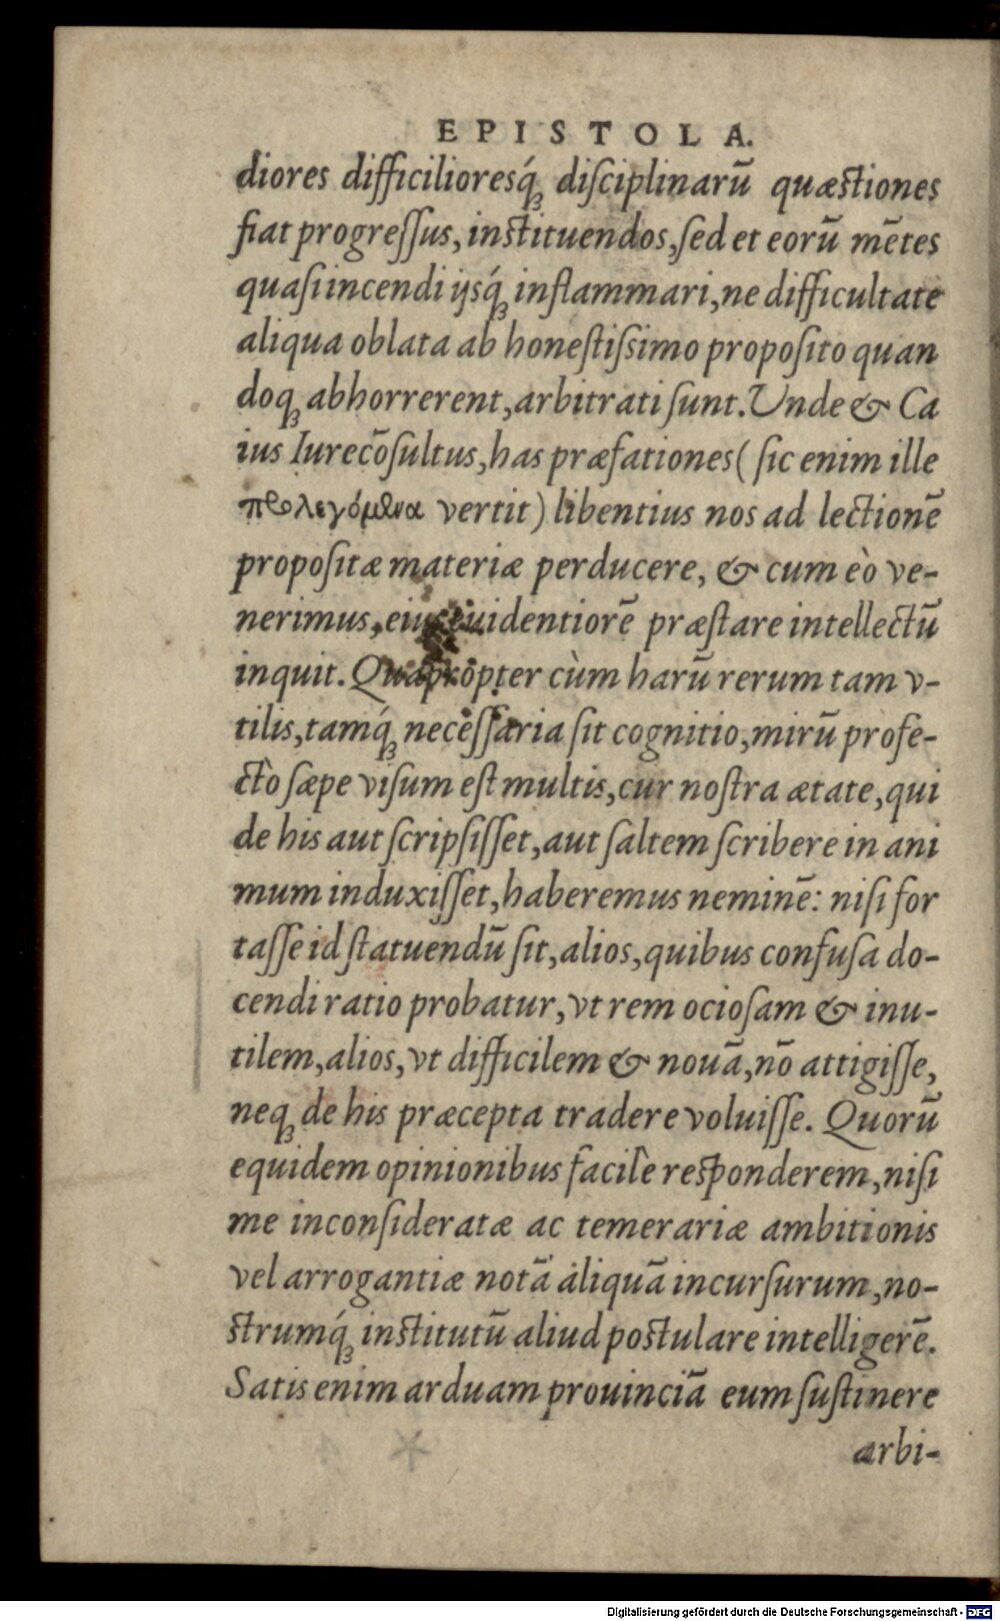 EPISTOLA.
diores difficilioresq́; diſciplinarū quæſtiones
fiat progreſſus, inſtituendos, ſed et eorū mētes
quaſi incendi ijsq́; inflammari, ne difficultate
aliqua oblata ab honeſtiſsimo propoſito quan
doq; abhorrerent, arbitrati ſunt. Unde & Ca
ius Iurecōſultus, has præfationes ( ſic enim ille
προλεγόμενα vertit) libentius nos ad lectionē
propoſitæ materiæ perducere, & cum eò ve-
nerimus, eius euidentiorē præſtare intellectū
inquit. Quapropter cùm harū rerum tam v-
tilis, tamq́; neceſſaria ſit cognitio, mirū profe-
ctò ſæpe viſum eſt multis, cur noſtra ætate, qui
de his aut ſcripſiſſet, aut ſaltem ſcribere in ani
mum induxiſſet, haberemus neminē: niſi for
taſſe id ſtatuendū ſit, alios, quibus confuſa do-
cendi ratio probatur, vt rem ocioſam & inu-
tilem, alios, vt difficilem & nouā, nō attigiſſe,
neq; de his præcepta tradere voluiſſe. Quorū
equidem opinionibus facilè reſponderem, niſi
me inconſideratæ ac temerariæ ambitionis
vel arrogantiæ notā aliquā incurſurum, no-
ſtrumq́; inſtitutū aliud poſtulare intelligerē.
Satis enim arduam prouinciā eum ſuſtinere
arbi-
Digitalisierung gefördert durch die Deutsche Forschungsgemeinschaft - DFG